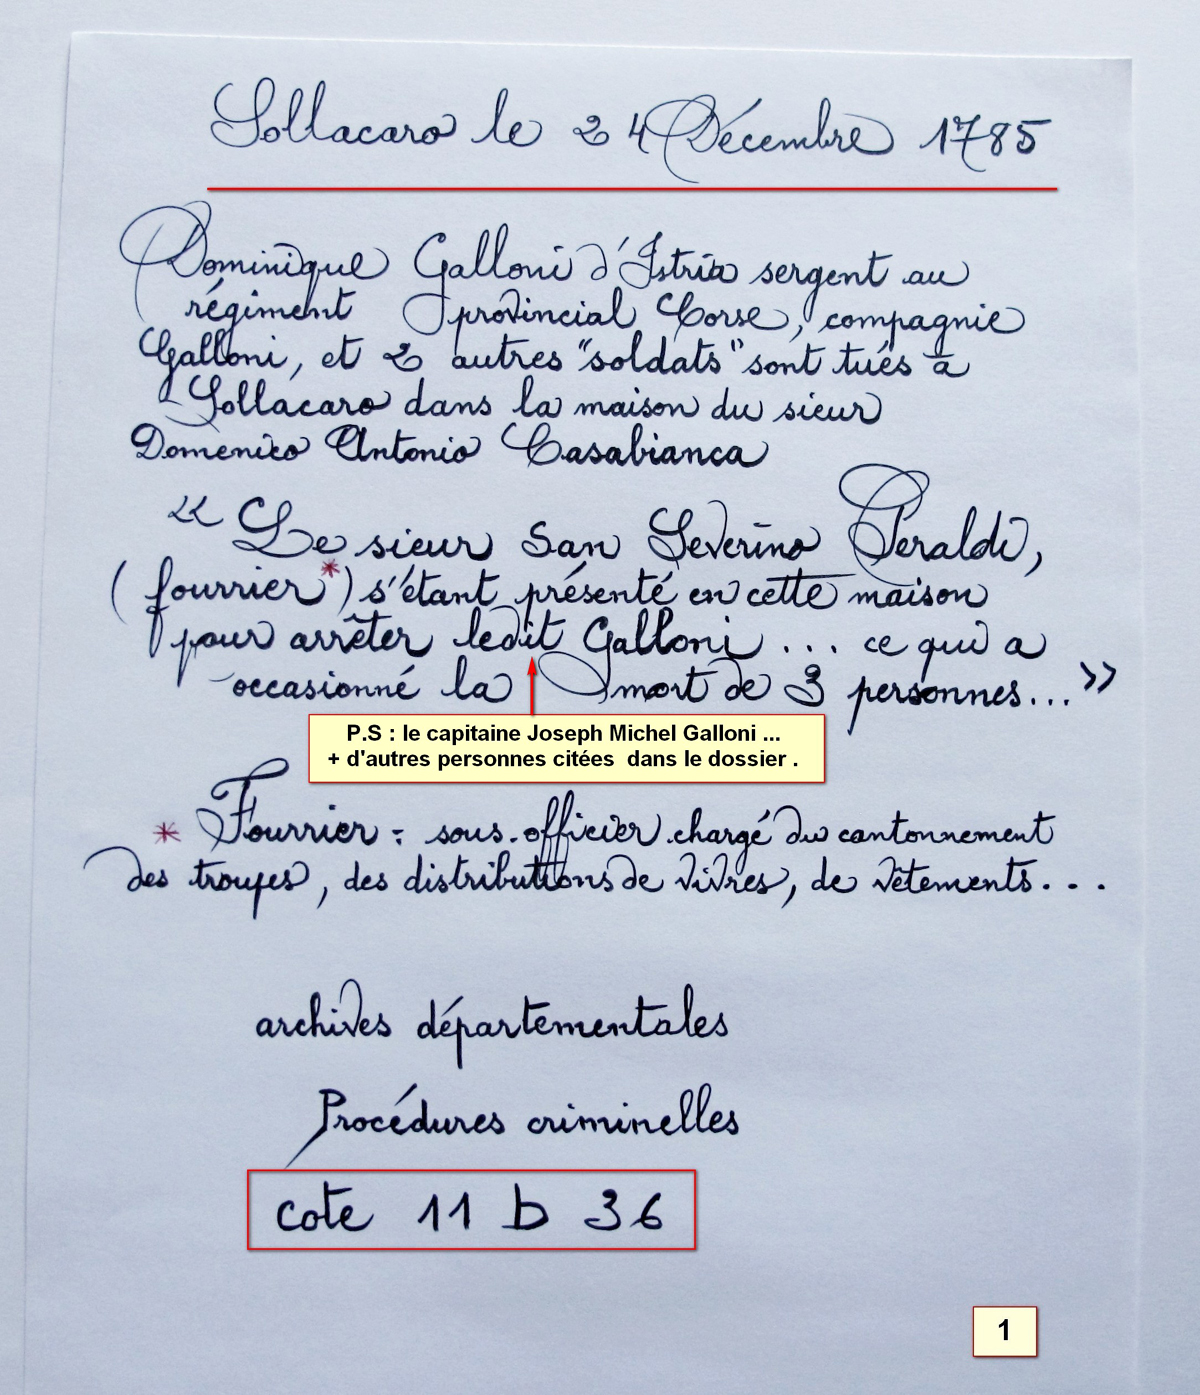 Sollacaro le 24 Décembre 1785
Dominique Galloni d'Istria sergent au
régiment provincial Corse, compagnie
Galloni, et 2 autres "soldats" sont tués à
Sollacaro dans la maison du sieur
Domenico Antonio Casabianca
« Le sieur San Severino Peraldi,
(fourrier*) s'étant présenté en cette maison
pour arrêter ledit Galloni ... ce qui a
occasionné la mort de 3 personnes... »
P.S : le capitaine Joseph Michel Galloni ...
+ d'autres personnes citées dans le dossier .
* Fourrier : sous-officier chargé du cantonnement
des troupes, des distributions de vivres, de vêtements...
archives départementales
Procédures criminelles
cote 11 b 36
1